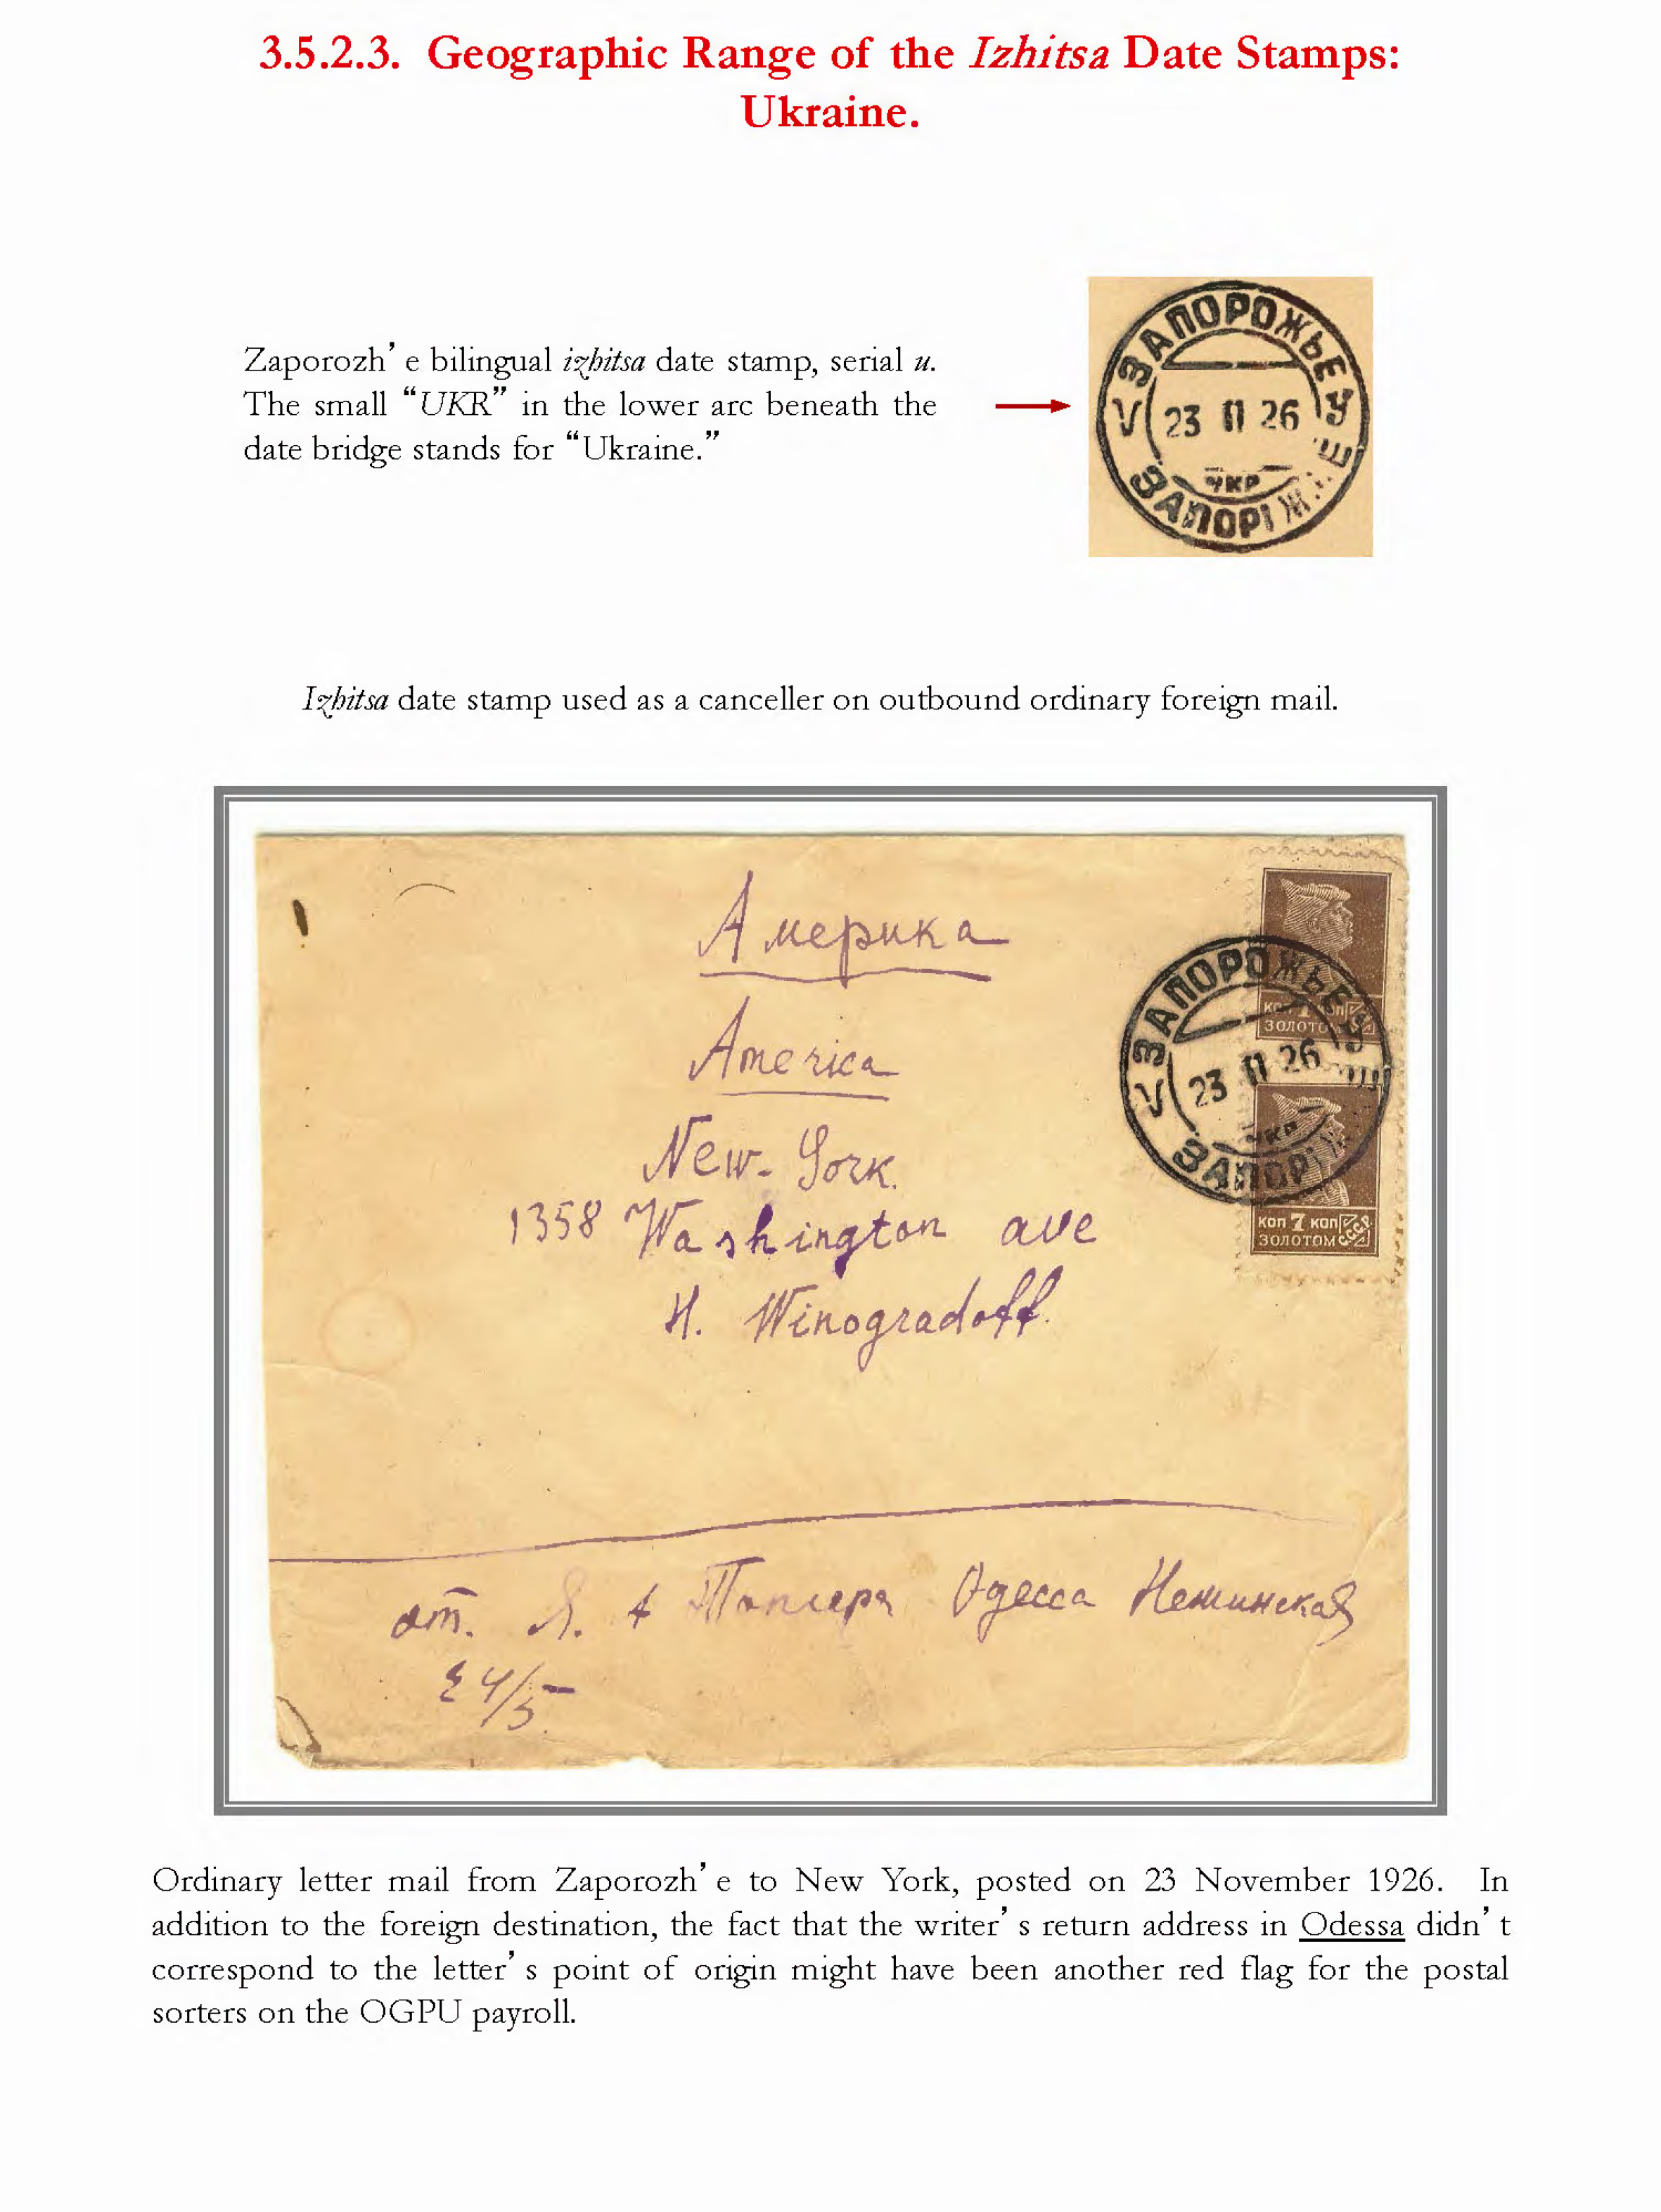 3.5.2.3. Geographic Range of the Izhitsa Date Stamps:
Ukraine.
Zaporozh’e bilingual izhitsa date stamp, serial u.
The small “UKR” in the lower arc beneath the
date bridge stands for “Ukraine.”
ЗАПОРОЖЬЕ У
V 23 11 26
УКР
ЗАПОРІЖ Е
Izhitsa date stamp used as a canceller on outbound ordinary foreign mail.
Америка
America
New-York.
1358 Washington ave
H. Winogradoff.
ЗАПОРОЖЬЕ
V 23 11 26
УКР
ЗАПОРІ
КОП 7 КОП
ЗОЛОТОМ СССР
от. Я. Одесса Нежинская
24/5
Ordinary letter mail from Zaporozh’e to New York, posted on 23 November 1926. In
addition to the foreign destination, the fact that the writer’s return address in Odessa didn’t
correspond to the letter’s point of origin might have been another red flag for the postal
sorters on the OGPU payroll.